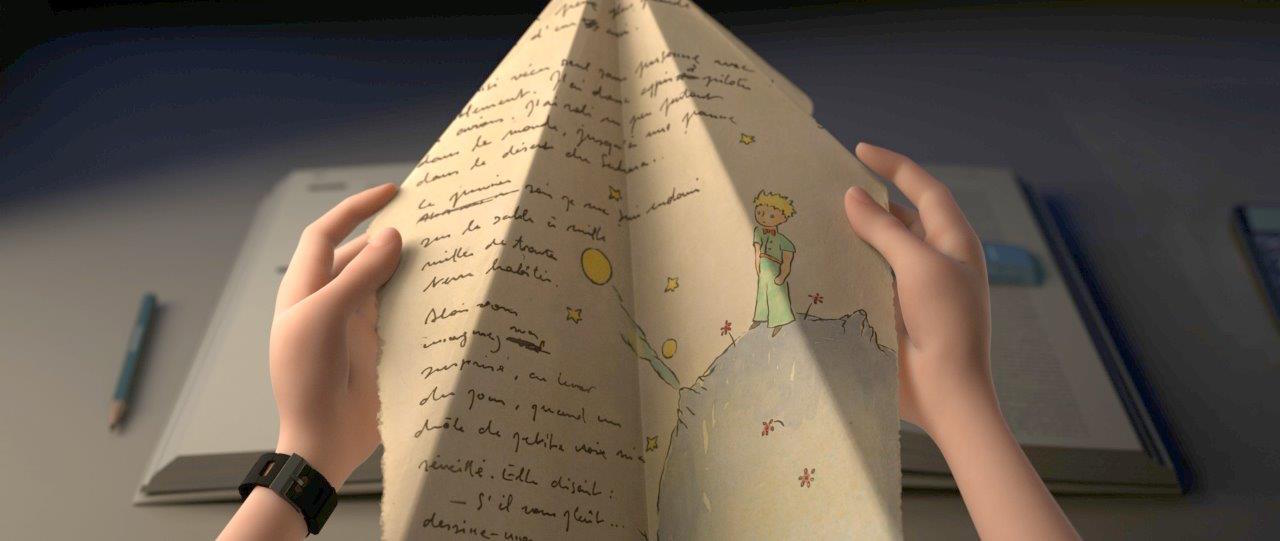 vécu seul sans personne avec
J'ai donc appris à piloter
avions. J'ai volé un peu partout
dans le monde, jusqu'à une panne
dans le désert du Sahara...
Le premier soir je me suis endormi
sur le sable à mille
milles de toute
terre habitée.
Alors vous
imaginez ma
surprise, au lever
du jour, quand une
drôle de petite voix m'a
réveillé. Elle disait :
— S'il vous plaît...
dessine-moi